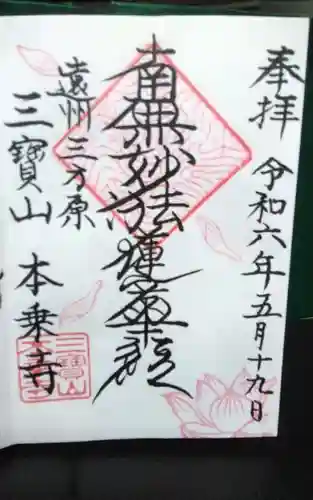 奉拝
令和六年五月十九日
南無妙法蓮華経
遠州三方原
三寶山 本乗寺